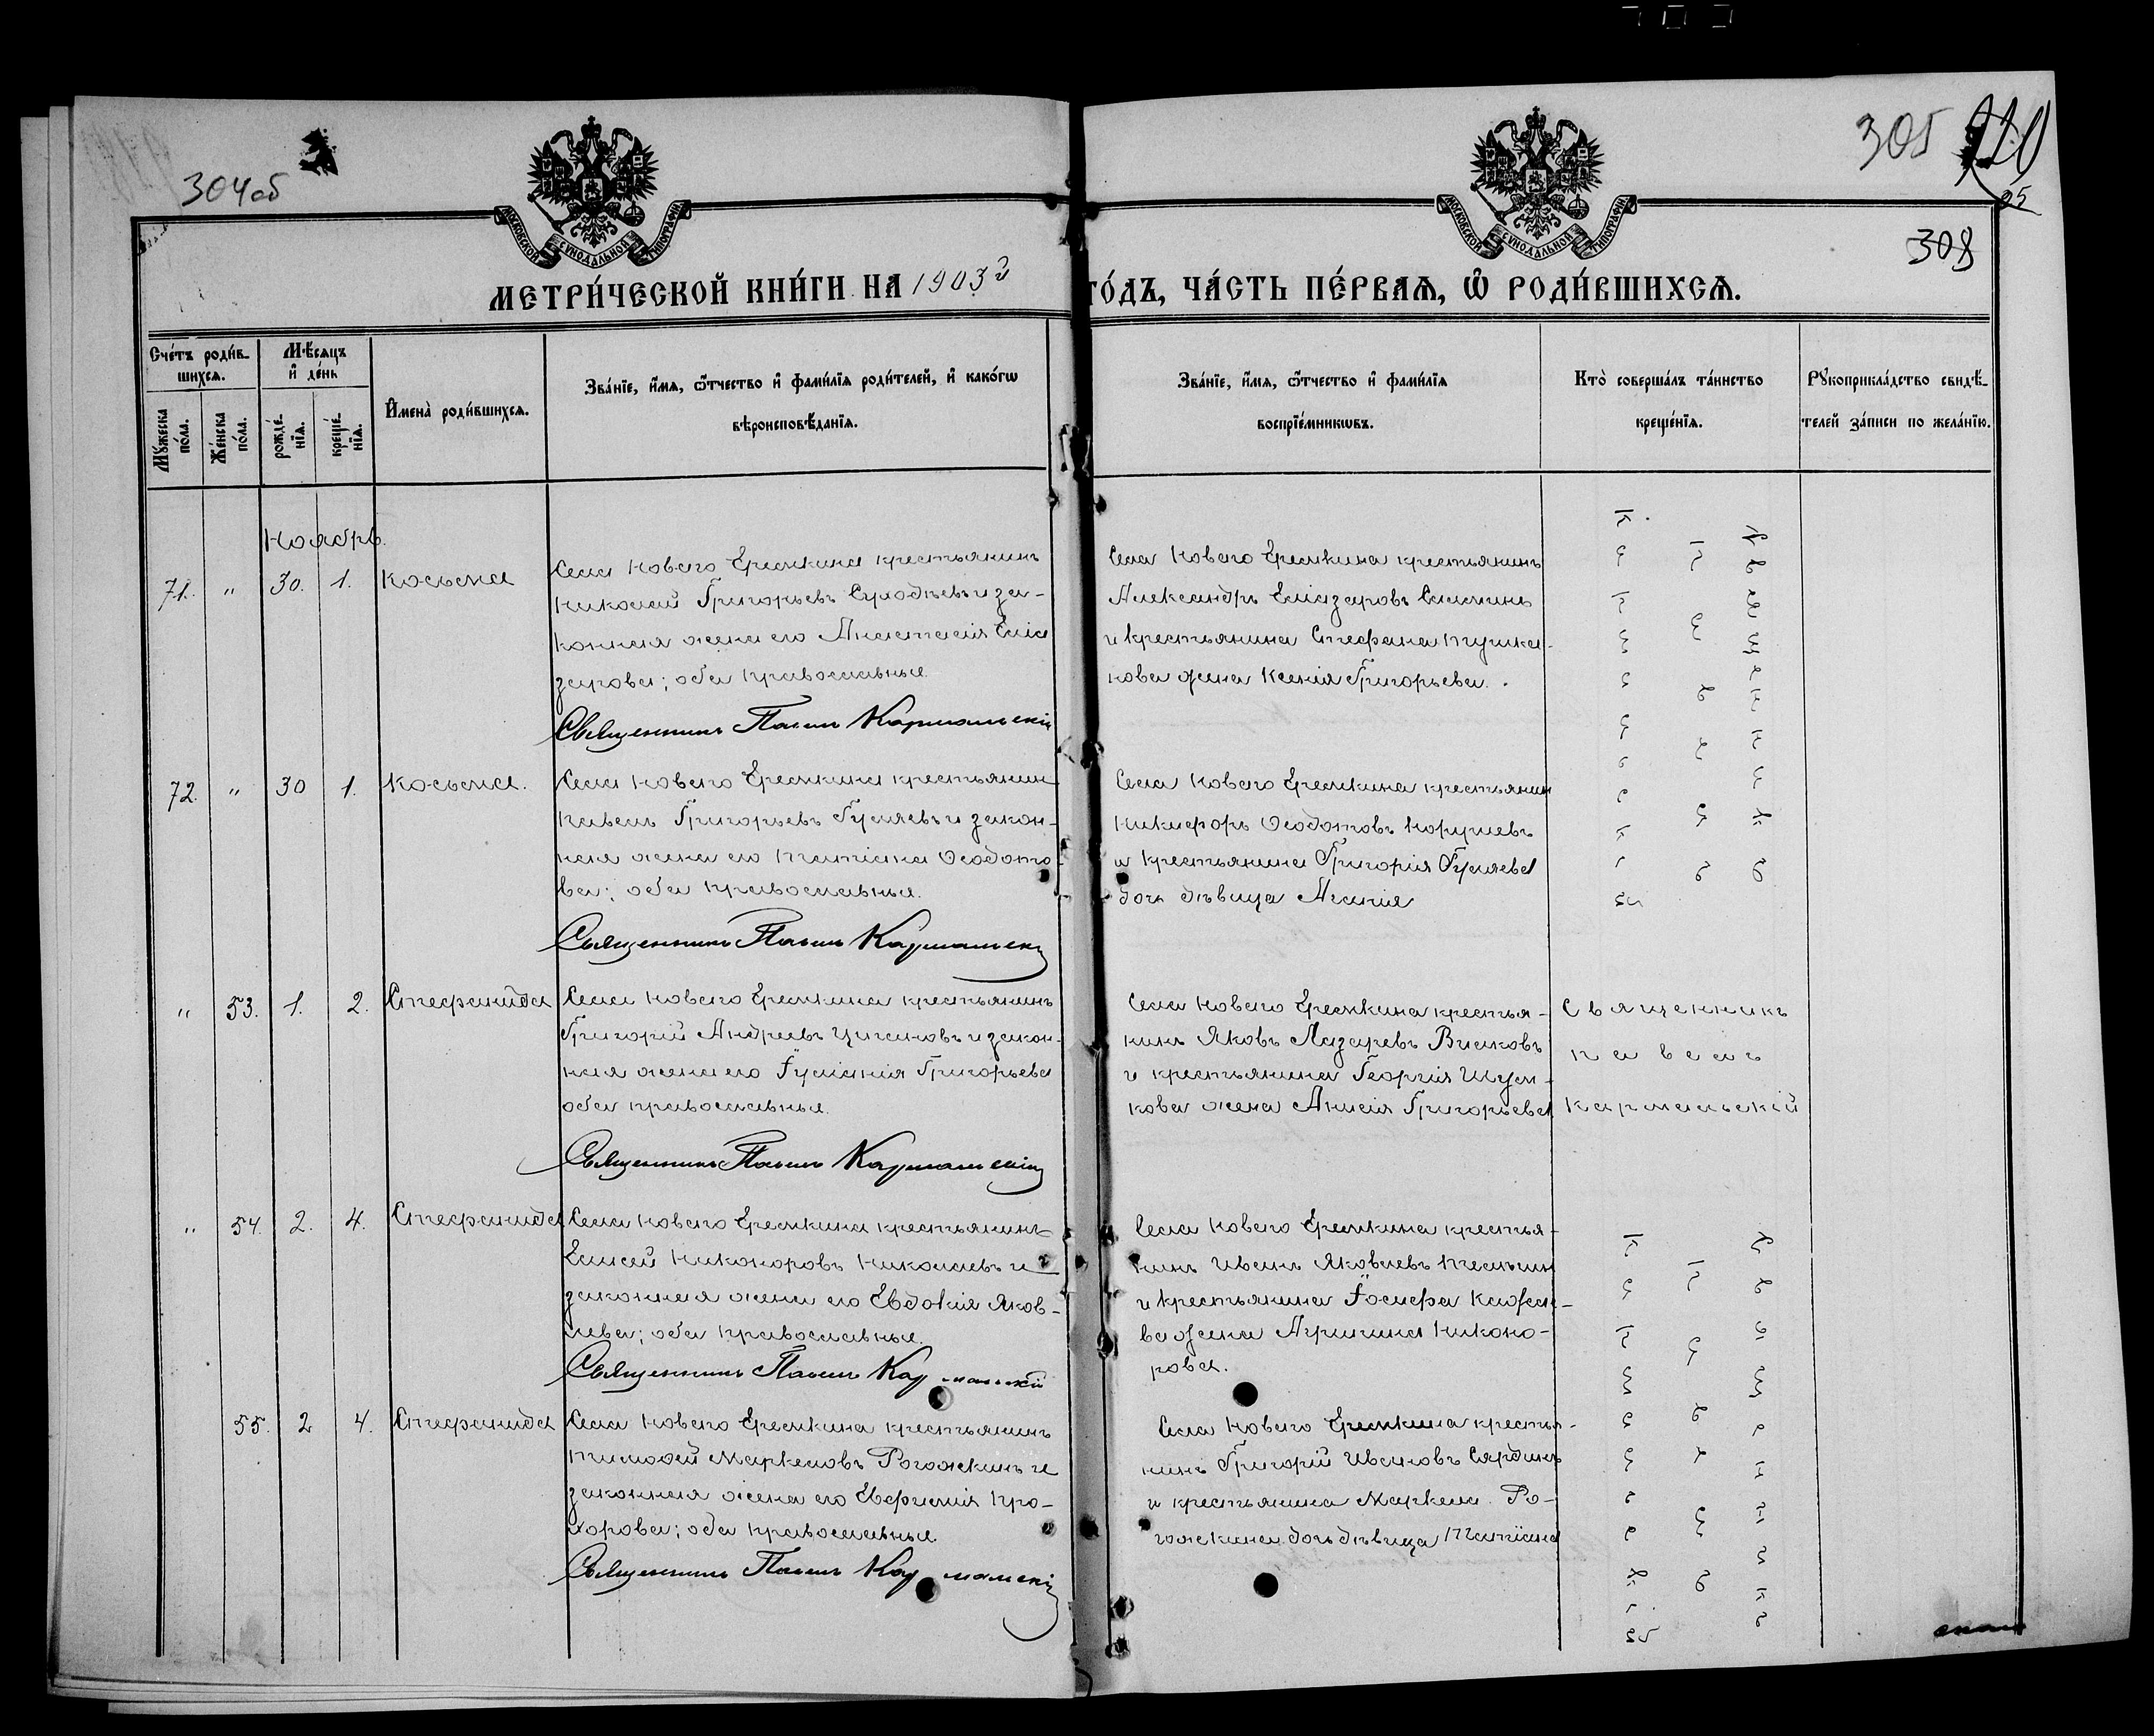 304 об
305
308
МОСКОВСКОЙ СѴНОДАЛЬНОЙ ТИПОГРАФІИ
МОСКОВСКОЙ СѴНОДАЛЬНОЙ ТИПОГРАФІИ
МЕТРИ́ЧЕСКОЙ КНИ́ГИ НА 1903й ГО́ДЪ, ЧА́СТЬ ПЕ́РВАѦ, Ѡ РОДИ́ВШИХСѦ.
Сче́тъ роди́в-
шихсѧ.
Мꙋ́жеска по́ла.
Же́нска по́ла.
Мѣ́сѧцъ и де́нь
рожде́-нїѧ.
креще́-нїѧ.
Имена̀ роди́вшихсѧ.
Зва́нїе, и́мѧ, ѻ́тчество и фами́лїѧ роди́телей, и како́гѡ
вѣроисповѣ́данїѧ.
Зва́нїе, и́мѧ, ѻ́тчество и фами́лїѧ
воспрїе́мникѡвъ.
Кто̀ соверша́лъ та́инство
креще́нїѧ.
Рꙋкоприкла́дство свидѣ́-
телей за́писи по жела́нїю.
Ноябрь.
71. " 30. 1. Косьма
Села Новаго Еремкина крестьянинъ
Николай Григорьевъ Суходѣевъ и за-
конная жена его Анастасія Елиа
зарова; оба православные.
Священникъ Павелъ Кармальскій
Села Новаго Еремкина крестьянинъ
Александръ Елиазаровъ
и крестьянина Стефана Пушка-
нова жена Ксенія Григорьева.
72. " 30 1. Косьма.
Села Новаго Еремкина крестьянин
Павелъ Григорьевъ Гуляевъ и закон-
ная жена его Татіана Ѳеодото-
ва; оба православные.
Священникъ Павелъ Кармальскій
Села Новаго Еремкина крестьянин
Никифоръ Ѳеодотовъ
и крестьянина Григорія Гуляева
дочь дѣвица
" 53. 1. 2. Стефанида
Села Новаго Еремкина крестьянинъ
Григорій Андреевъ Цыгановъ и закон-
ная жена его Іуліанія Григорьева
оба православные.
Священникъ Павелъ Кармальскій
Села Новаго Еремкина крестья-
нинъ Яковъ Лазаревъ
и крестьянина Георгія
жена Анисія Григорьева
Священникъ
Павелъ
Кармальскій
" 54. 2. 4. Стефанида
Села Новаго Еремкина крестьянинъ
Елисей Никоноровъ Николаевъ и
законная жена его Евдокія Яков-
лева; оба православные.
Священникъ Павелъ Кармальскій
Села Новаго Еремкина крестья-
нинъ Иванъ Яковлевъ
и крестьянина Іосифа
жена Агриппина Никоно-
рова.
55. 2 4. Стефанида
Села Новаго Еремкина крестьянинъ
Тимоѳей Маркеловъ Рогожкинъ и
законная жена его Евфимія Про-
хорова; оба православные.
Священникъ Павелъ Кармальскій
Села Новаго Еремкина крестья-
нинъ Григорій Ивановъ Сярдинъ
и крестьянина Маркела Ро-
гожкина дочь дѣвица Татіана